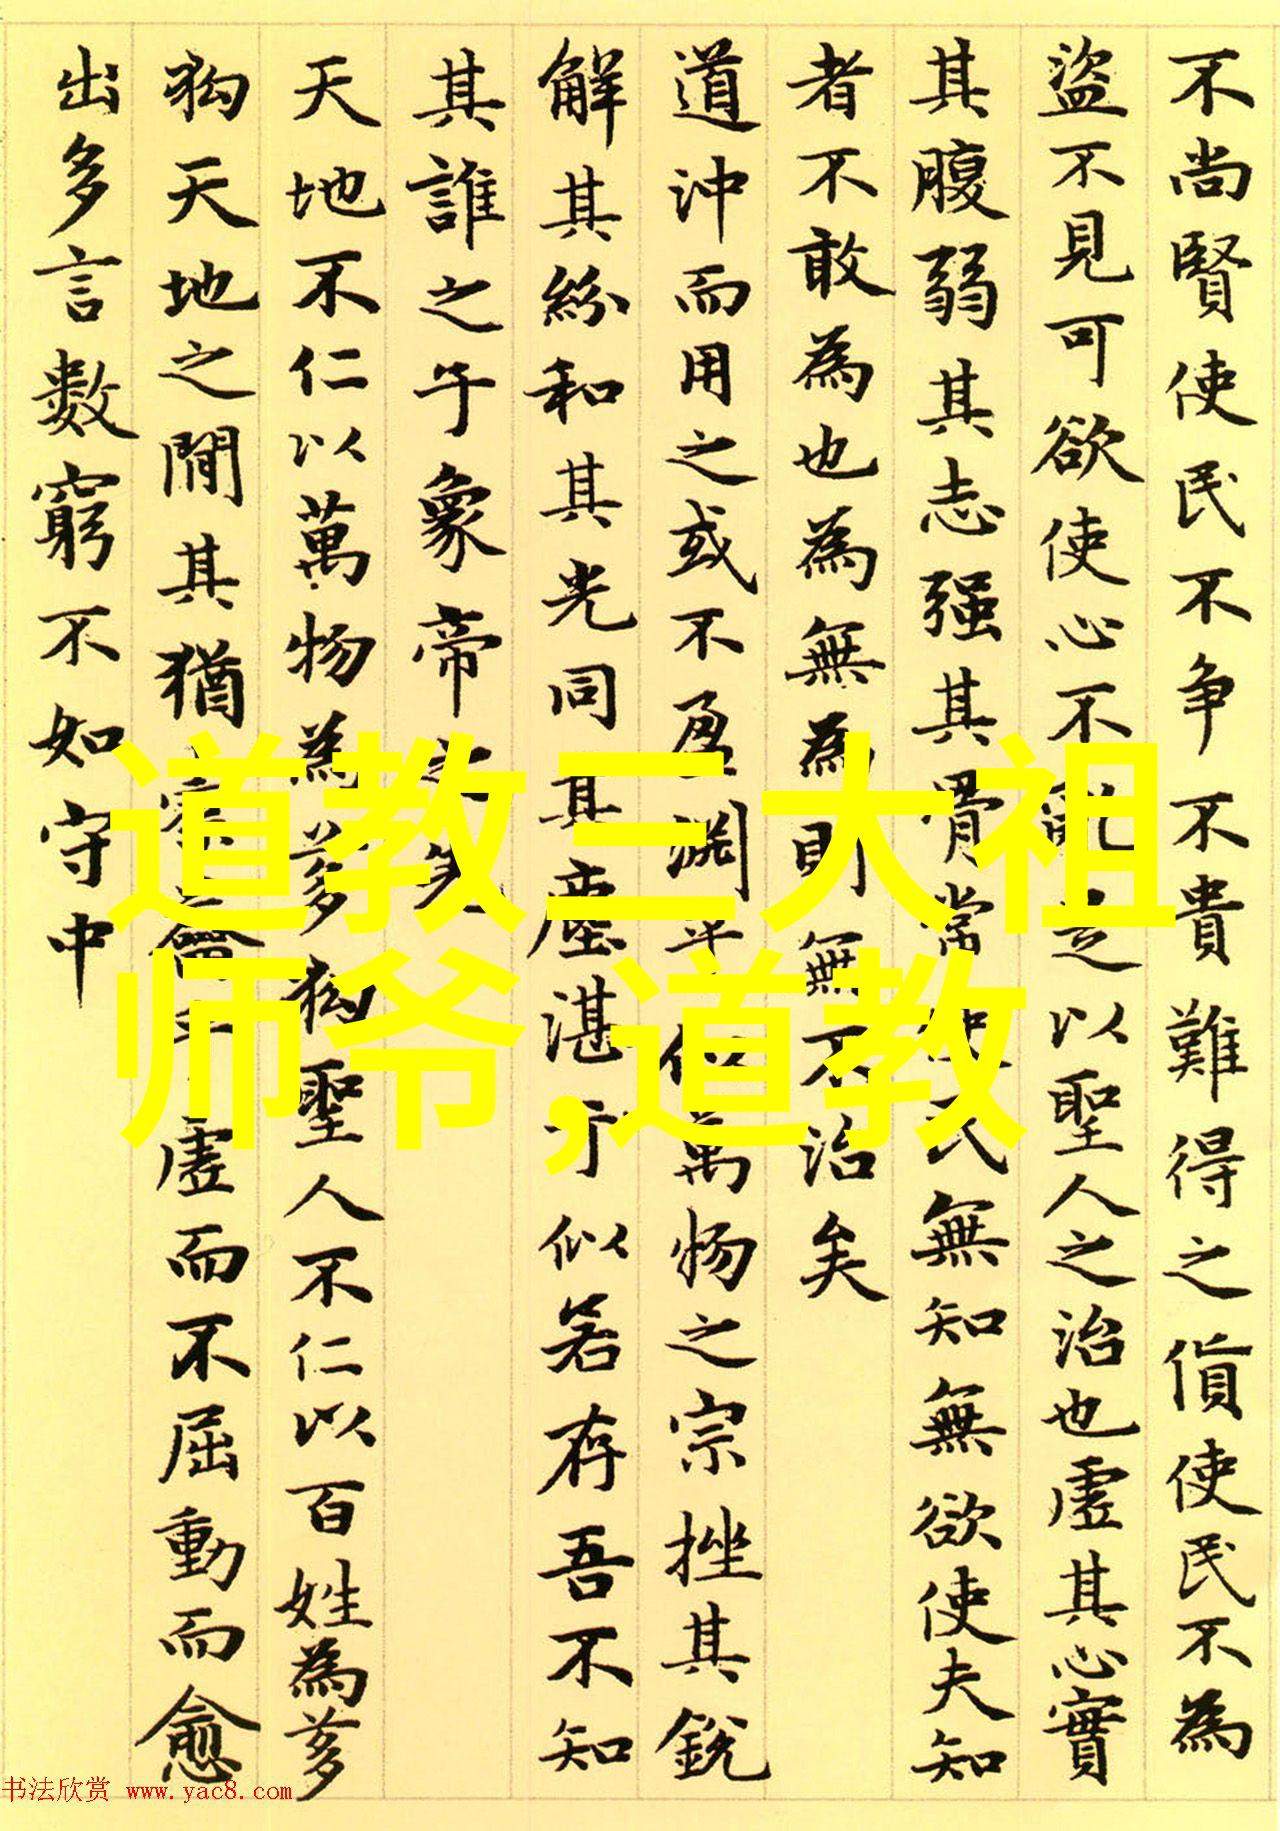 不尚賢使民不争不貴難得之貨使民不為
盜不見可欲使心不亂是以聖人之治也虛其心實
其腹弱其志强其骨常使民無知無欲使夫知
者不敢為也為無為則無不治矣
道沖而用之或不盈淵乎似萬物之宗挫其銳
解其紛和其光同其塵湛兮似若存吾不知
其誰之子象帝之先
天地不仁以萬物為芻狗聖人不仁以百姓為芻
狗天地之間其猶橐籥乎虛而不屈動而愈
出多言數窮不如守中
道教三大祖
师爷,道教
书法欣赏 www.yac8.com